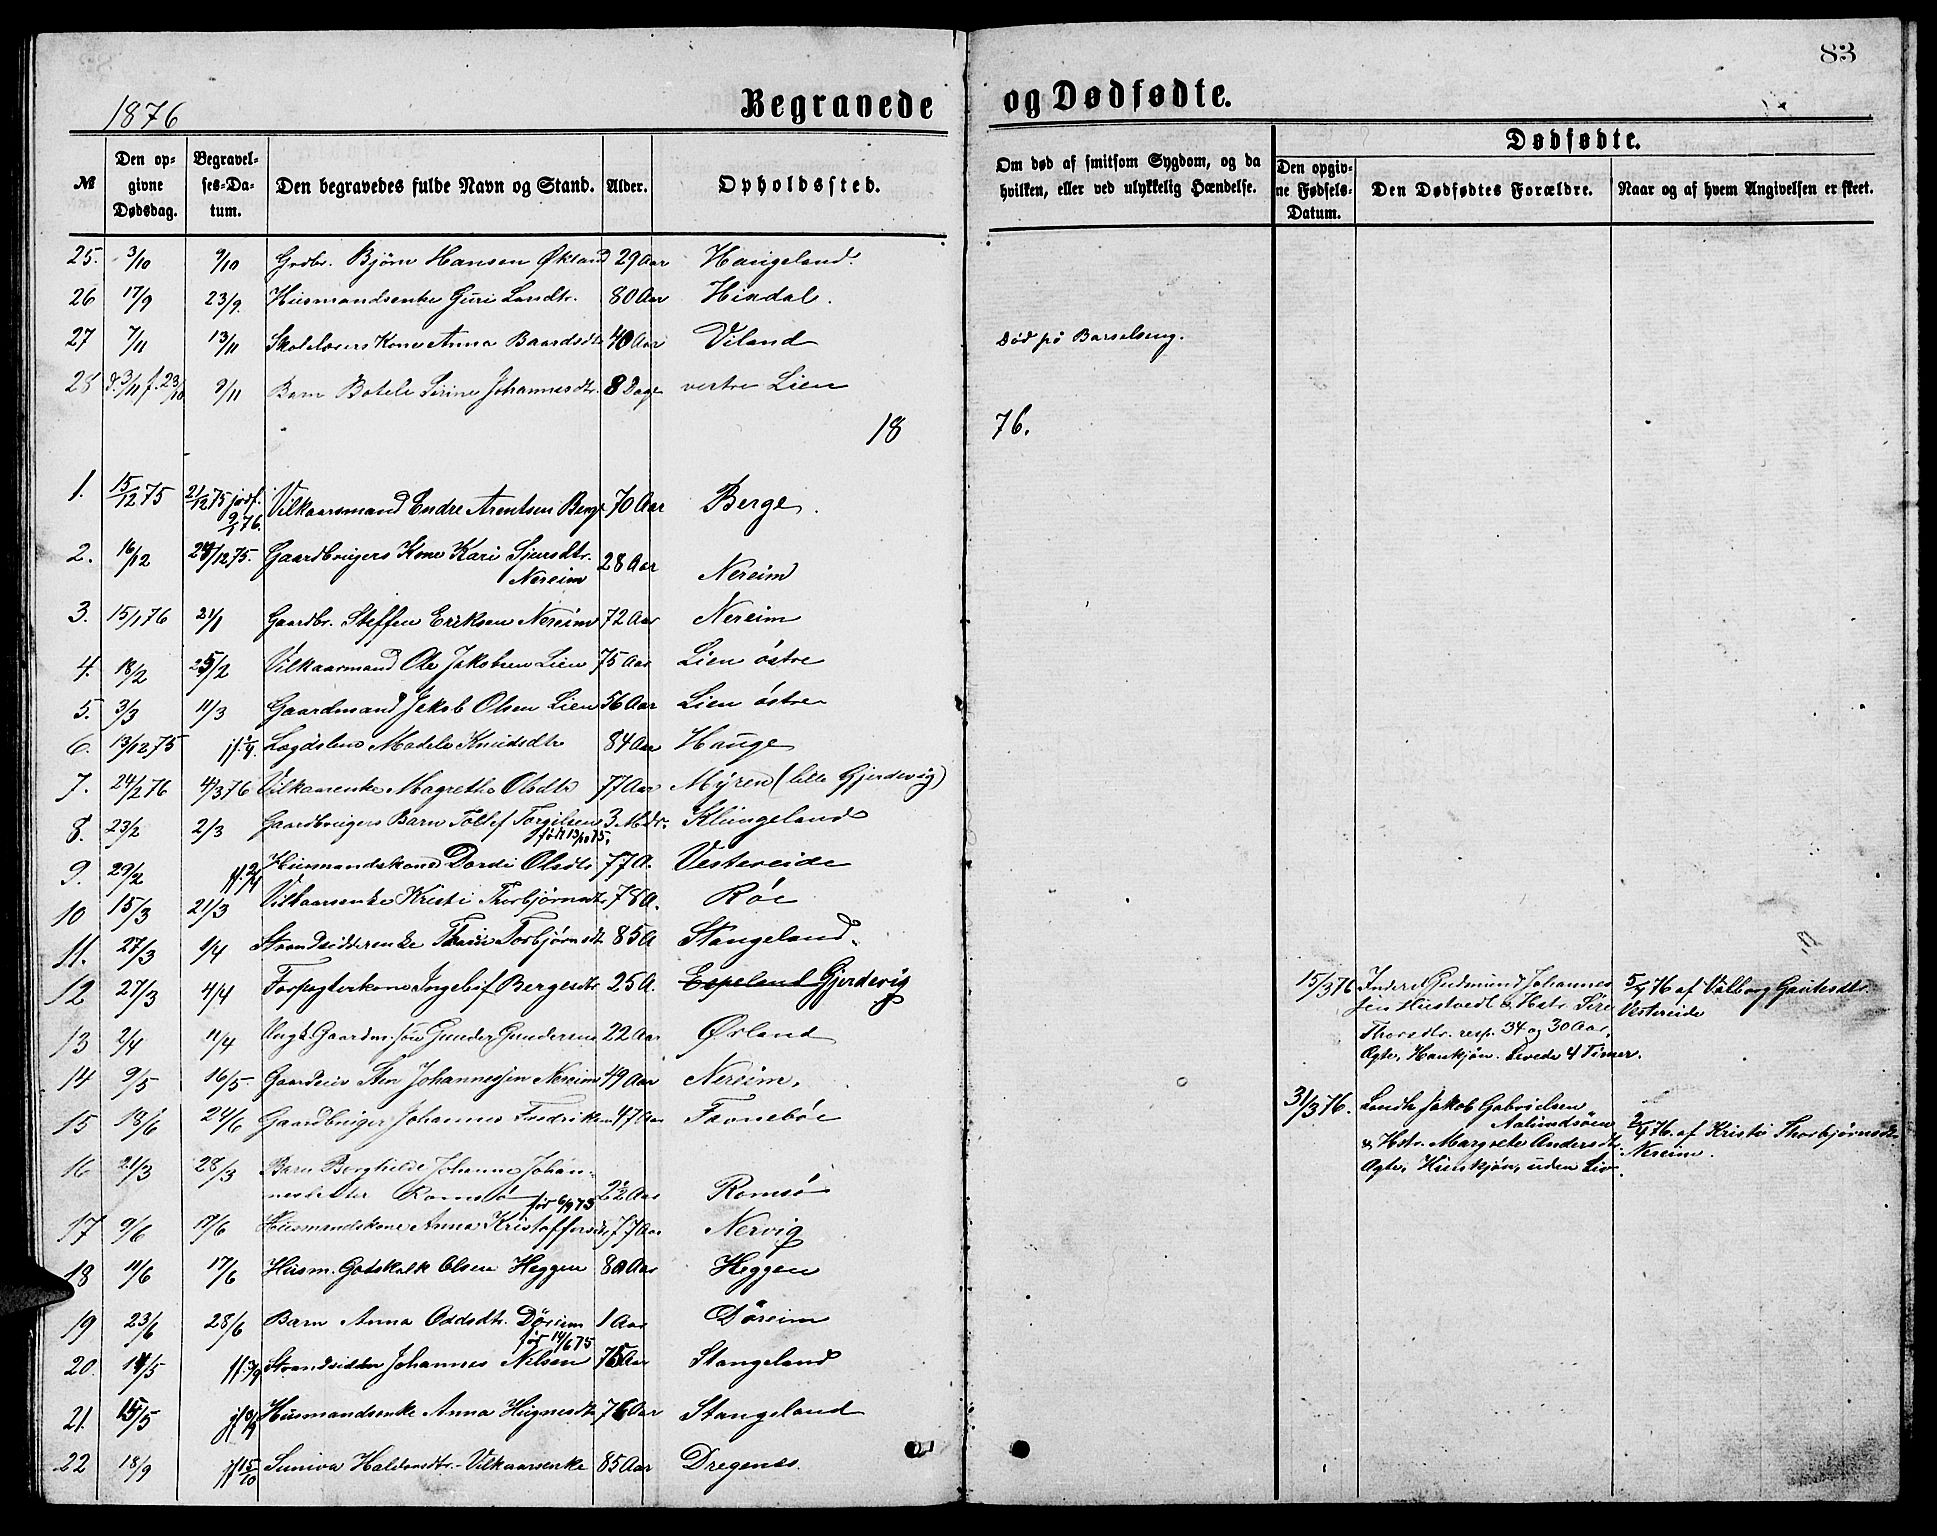 83
1876
Begravede og Dødfødte.
№ | Den opgivne Dødsdag. | Begravelses-Datum. | Den begravedes fulde Navn og Stand. | Alder. | Opholdssted. | Om død af smitsom Sygdom, og da hvilken, eller ved ulykkelig Hændelse.
Dødfødte.
Den opgivne Fødsels-Datum. | Den Dødfødtes Forældre. | Naar og af hvem Angivelsen er skeet.
25. 3/10 9/10 Grdbr. Bjørn Hansen Økland 29 Aar Haugeland.
26 17/9 23/9. Husmandsenke Guri Larsdtr. 80 Aar Hindal.
27 7/11 13/11 Skolelærers Kone Anna Baardsdtr 40 Aar Viland Død på Barselseng.
28 d. 3/11 f. 23/10 9/11 Barn Botele Serine Johannesdtr. 8 Dage vestre Lien
1876.
1. 15/12 75 21/12 75 jordf. 9/1 76. Vilkaarsmand Endre Arentsen Berge 70 Aar Berge.
2. 16/12 24/12 75. Gaardbrugers Kone Kari Sjursdtr.
Nereim 28 Aar Nereim
3. 15/1 76 21/1 Gaardbr. Steffen Eriksen Nereim 72 Aar Nereim
4. 18/2 25/2 Vilkaarmand Ole Jakobsen Lien 75 Aar Lien östre
5. 3/3 11/3 Gaardmand Jakob Olsen Lien 56 Aar Lien östre
6. 13/12 75 Lægdslem Madele Knudsdtr 84 Aar Hauge
7. 24/2 76 4/3 76 Vilkaarenke Magrethe Olsdtr 77 Aar Myren (lille Gjerdevig)
8. 23/2 2/3 Gaardbrugers Barn Tollef Torgilsen 3 Mdr. Klungeland
født 13/10 75.
9. 29/2 jf. 2/4 Husmandskone Dordi Olsdtr 77 A. Vestereide
10 15/3 21/3 Vilkaarsenke Kristi Thorbjørnsdtr 78 A. Röe
11. 27/3 1/4 Strandsidderenke Torbjørnsdtr 85 A Stangeland.
12 27/3 4/4 Forpagterkone Ingebor Bergesdtr. 25 A. Espeland Gjerdevig
13 2/4 11/4 Ungk. Gaardm. søn Gunder Gundersen 22 Aar Ørland
14 9/5 16/5 Gaardeier Sten Johannessen Nereim 49 Aar Nereim.
15 18/6 24/6 Gaardbruger Johannes Fredriksen 47 Aar Favnebøe
16 21/3 28/3 Barn Borghilde Johanne Johan-
nesdatter Romsö 2 1/2 Aar Romsö
17 9/6 17/6 Husmandskone Anna Kristoffersdtr 77 Aar Nervig
18 11/6 17/6 Husm. Godskalk Olsen Heggen 80 Aar Heggen
19 23/6 28/6 Barn Anna Oddsdtr. Döreim 1 Aar Döreim
för 14/6 75
20. 14/5 Strandsidder Johannes Nilsen 75 Aar Stangeland
21. 15/5 Husmandsenke Anna Hognesdtr 76 Aar Stangeland
22 18/9 jf 15/10 Suniva Haldorsdtr. Vilkaarsenke 85 Aar Dregenes.
15/3 76 Inderst Gudmund Johannes
sen Hustvedt & Hstr. Siri
Thorsdtr. resp. 34 og 30 Aar,
Ægte, Hankjøn. Levede 4 Timer.
5/4 76 af Valborg Gautesdtr.
Vestereide
31/3 76. Landh. Jakob Gabrielsen
Aalundsöen
& Hstr. Margrete Andersdtr
Ægte, Hunkjøn, uden Liv.
2/4 76. af Kristi Thorbjørnsdtr
Nereim.